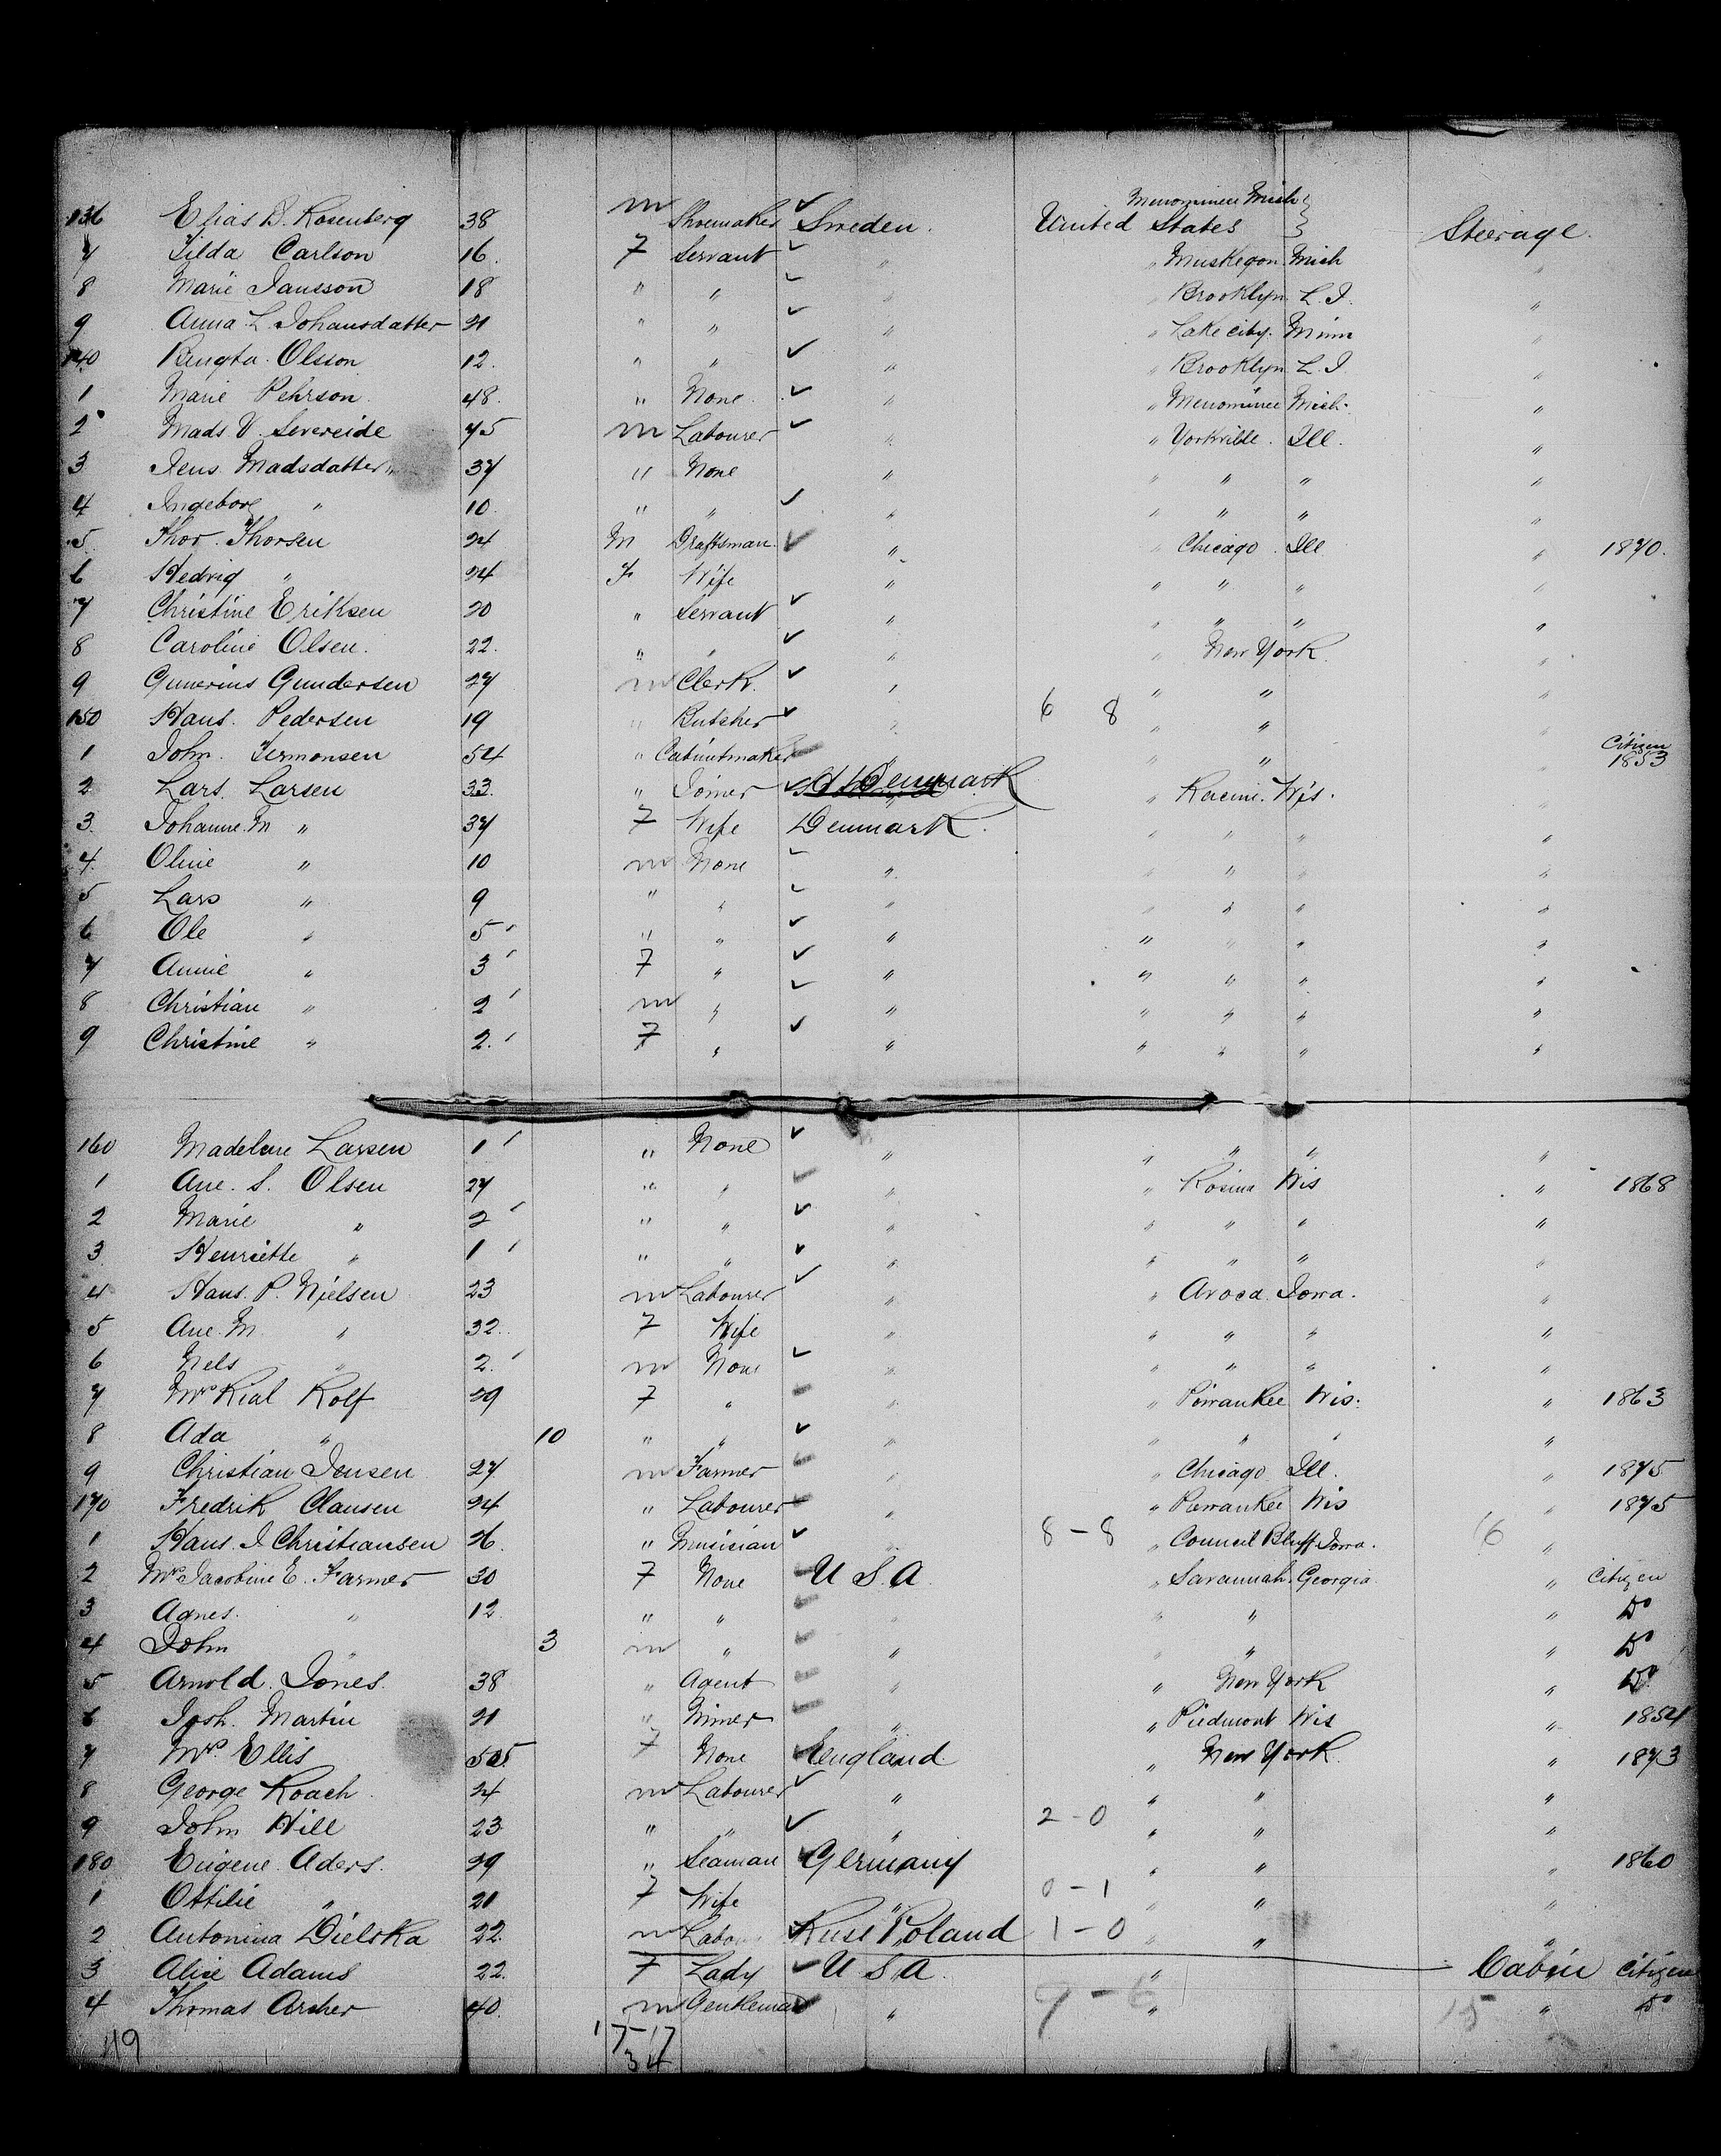 Menominee Mich
136 Elias D. Rosenberg 38 m Shoemaker Sweden. United States Steerage.
7 Tilda Carlson 16. F Servant " " Muskegon Mich "
8 Marie Jansson 18 " " " " Brooklyn L. I. "
9 Anna L. Johansdatter 21 " " " " Lake city. Minn "
140 Bengta Olsson 12. " " " " Brooklyn L. I. "
1 Marie Pehrson 48. " None " " Menominee Mich. "
2 Mads V. Severeide 45 m Labourer " " Yorkville. Ill. "
3 Jens Madsdatter 37 " None " " " " "
4 Ingeborg " 10. " " " " " " "
5 Thor. Thorsen 24 M Draftsman " " Chicago Ill " 1870.
6 Hedvig " 24 F Wife " " " " "
7 Christine Eriksen 20 " Servant " " " " "
8 Caroline Olsen. 22. " " " " New York. "
9 Gunerius Gundersen 27 m Clerk. " " " "
150 Hans. Pedersen 19 " Butcher " 6 8 " " "
1 John. 54 " Cabinetmaker " " " Citizen 1853
2 Lars. Larsen 33. " Joiner Denmark " Racine. Wis. "
3. Johanne. M " 37 F Wife Denmark. " " " "
4. Oline " 10 m None " " " " "
5 Lars " 9 " " " " " " "
6 Ole " 5 " " " " " " "
7 Annie " 3 F " " " " " "
8 Christian " 2 m " " " " " "
9 Christine " 2. F " " " " " "
160 Larsen 1 " None " " " " "
1 Ane. S. Olsen 27 " " " " Wis " 1868
2 Marie " 2 " " " " " " "
3 Henriette " 1 " " " " " " "
4 Hans. P. Nielsen 23 m Labourer " " Avoca. Iowa. "
5 Ane. M. " 32. F Wife " " " " "
6 Nels " 2. m None " " " " "
7 Mrs Rolf 29 F " " " Pewaukee Wis. " 1863
8 Ada " 10 " " " " " " "
9 Christian Jensen 27 m Farmer " " Chicago Ill. " 1875
170 Fredrik Clausen 24 " Labourer " " Pewaukee Wis " 1875
1 Hans. J Christiansen 26. " Musician " 8 - 8 " Council Bluff Iowa. 16 "
2 Mrs Jacobine E. Farmer 30 F None U S. A " Savannah. Georgia " Citizen
3 Agnes. " 12. " " " " " " Do
4 John " 3 m " " " " " Do
5 Arnold. Jones. 38 " Agent " " New York " Do
6 Josh. Martin 21 " Miner " " Piedmont Wis " 1854
7 Mrs. Ellis F None England " New York " 1873
8 George Roach 24 m Labourer " " " "
9 John Hill 23 " " " 2 - 0 " " "
180 Eugene Aders. 29 " Seaman Germany " " " 1860
1 Ottilie " 21 F Wife " 0 - 1 " " "
2 Antonina Dielska 22. m Russ Poland 1 - 0 " " "
3 Alice Adams 22. F Lady U S. A. " Cabin citizen
4 Thomas Archer 40. m Gentleman " 9 - 6 " 15 " Do
119 17-17
34